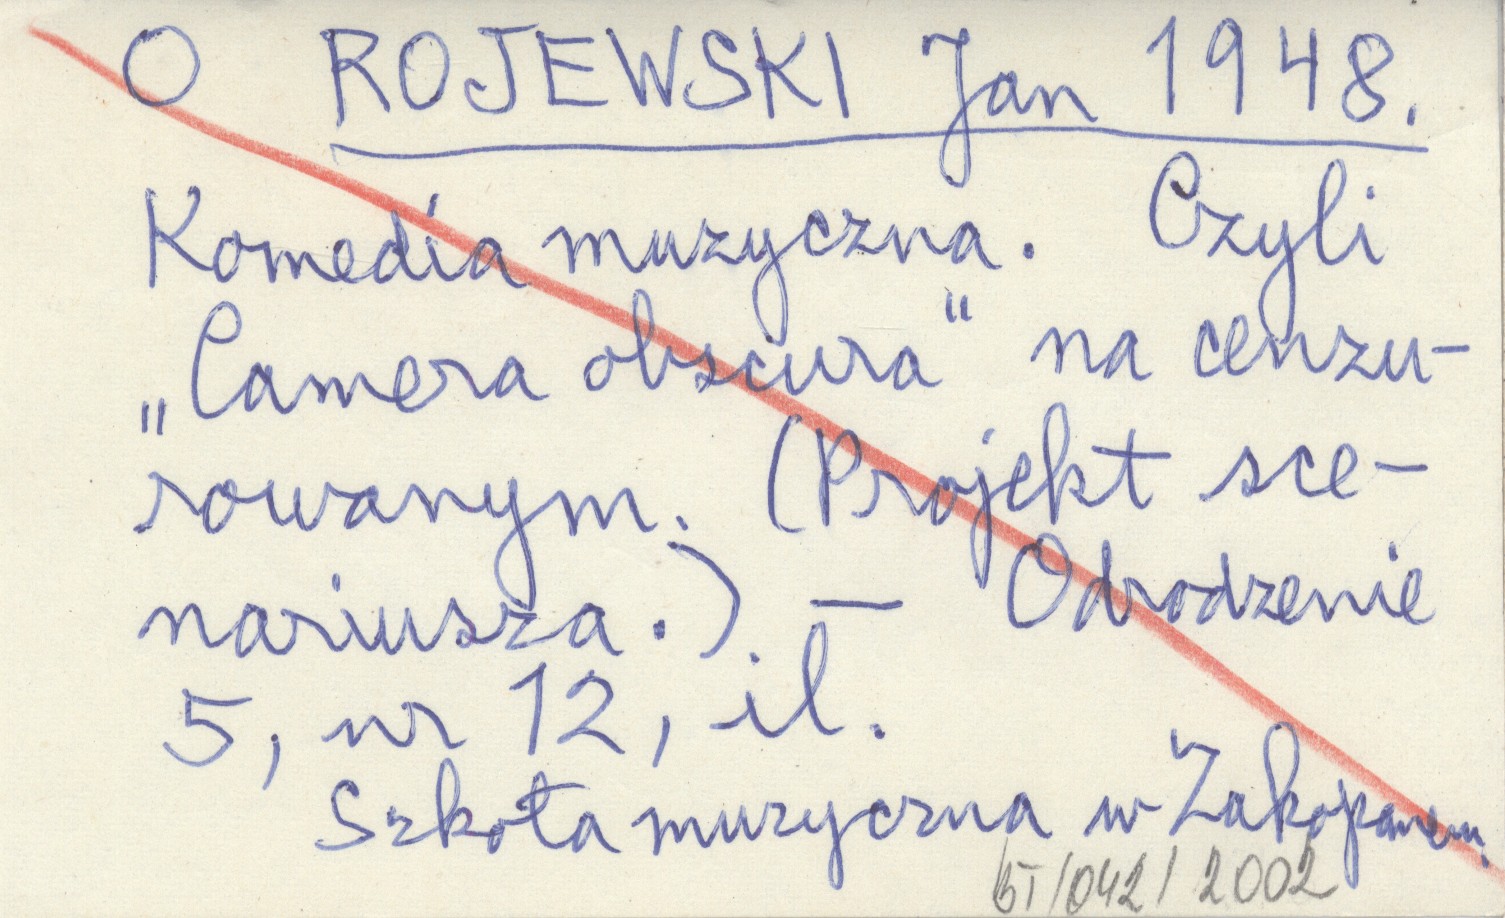 O ROJEWSKI Jan 1948.
Komedia muzyczna. Czyli
„Camera obscura" na cenzu-
rowanym. (Projekt sce-
nariusza.) — Odrodzenie
5, nr 12, il.
Szkoła muzyczna w Zakopanem.
BT/042/2002